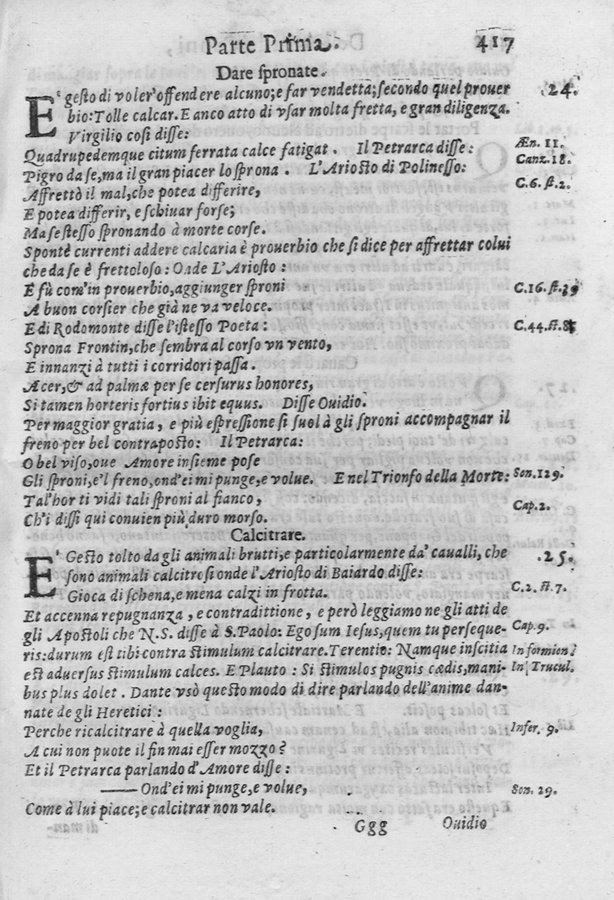 Parte Prima. 417
Dare spronate. .24.
E' gesto di voler' offendere alcuno; e far vendetta; secondo quel prouer
bio: Tolle calcar. E anco atto di vsar molta fretta, e gran diligenza.
Virgilio così disse:
Quadrupedemque citum ferrata calce fatigat. Il Petrarca disse: Æn. 11.
Pigro da se, ma il gran piacer lo sprona. L'Ariosto di Polinesso: Canz. 18.
Affrettò il mal, che potea differire, C. 6. st. 2.
E potea differir, e schiuar forse;
Ma se stesso spronando à morte corse.
Spontè currenti addere calcaria è prouerbio che si dice per affrettar colui
che da se è frettoloso: Onde L'Ariosto:
E fù com'in prouerbio, aggiunger sproni C. 16. st. 39
A buon corsier che già ne va veloce.
E di Rodomonte disse l'istesso Poeta: C. 44. st.
Sprona Frontin, che sembra al corso vn vento,
E innanzi à tutti i corridori passa.
Acer, & ad palmæ per se cersurus honores,
Si tamen horteris fortius ibit equus. Disse Ouidio.
Per maggior gratia, e più espressione si suol à gli sproni accompagnar il
freno per bel contraposto: Il Petrarca:
O bel viso, oue Amore insieme pose
Gli sproni, e'l freno, ond'ei mi punge, e volue. E nel Trionfo della Morte: Son. 129.
Tal'hor ti vidi tali sproni al fianco, Cap. 2.
Ch'i dissi qui conuien più duro morso.
Calcitrare.
E' Gesto tolto da gli animali brutti, e particolarmente da' caualli, che .25.
sono animali calcitrosi onde l'Ariosto di Baiardo disse:
Gioca di schena, e mena calzi in frotta. C. 2. st. 7.
Et accenna repugnanza, e contradittione, e però leggiamo ne gli atti de
gli Apostoli che N.S. disse à S. Paolo: Ego sum Iesus, quem tu perseque- Cap. 9.
ris: durum est tibi contra stimulum calcitrare. Terentio: Namque inscitia In formion?
est aduersus stimulum calces. E Plauto: Si stimulos pugnis cædis, mani- In Trucul.
bus plus dolet. Dante vsò questo modo di dire parlando dell'anime dan-
nate de gli Heretici:
Perche ricalcitrare à quella voglia, Infer. 9.
A cui non puote il fin mai esser mozzo?
Et il Petrarca parlando d'Amore disse:
—— Ond'ei mi punge, e volue, Son. 29.
Come à lui piace; e calcitrar non vale.
Ggg Ouidio